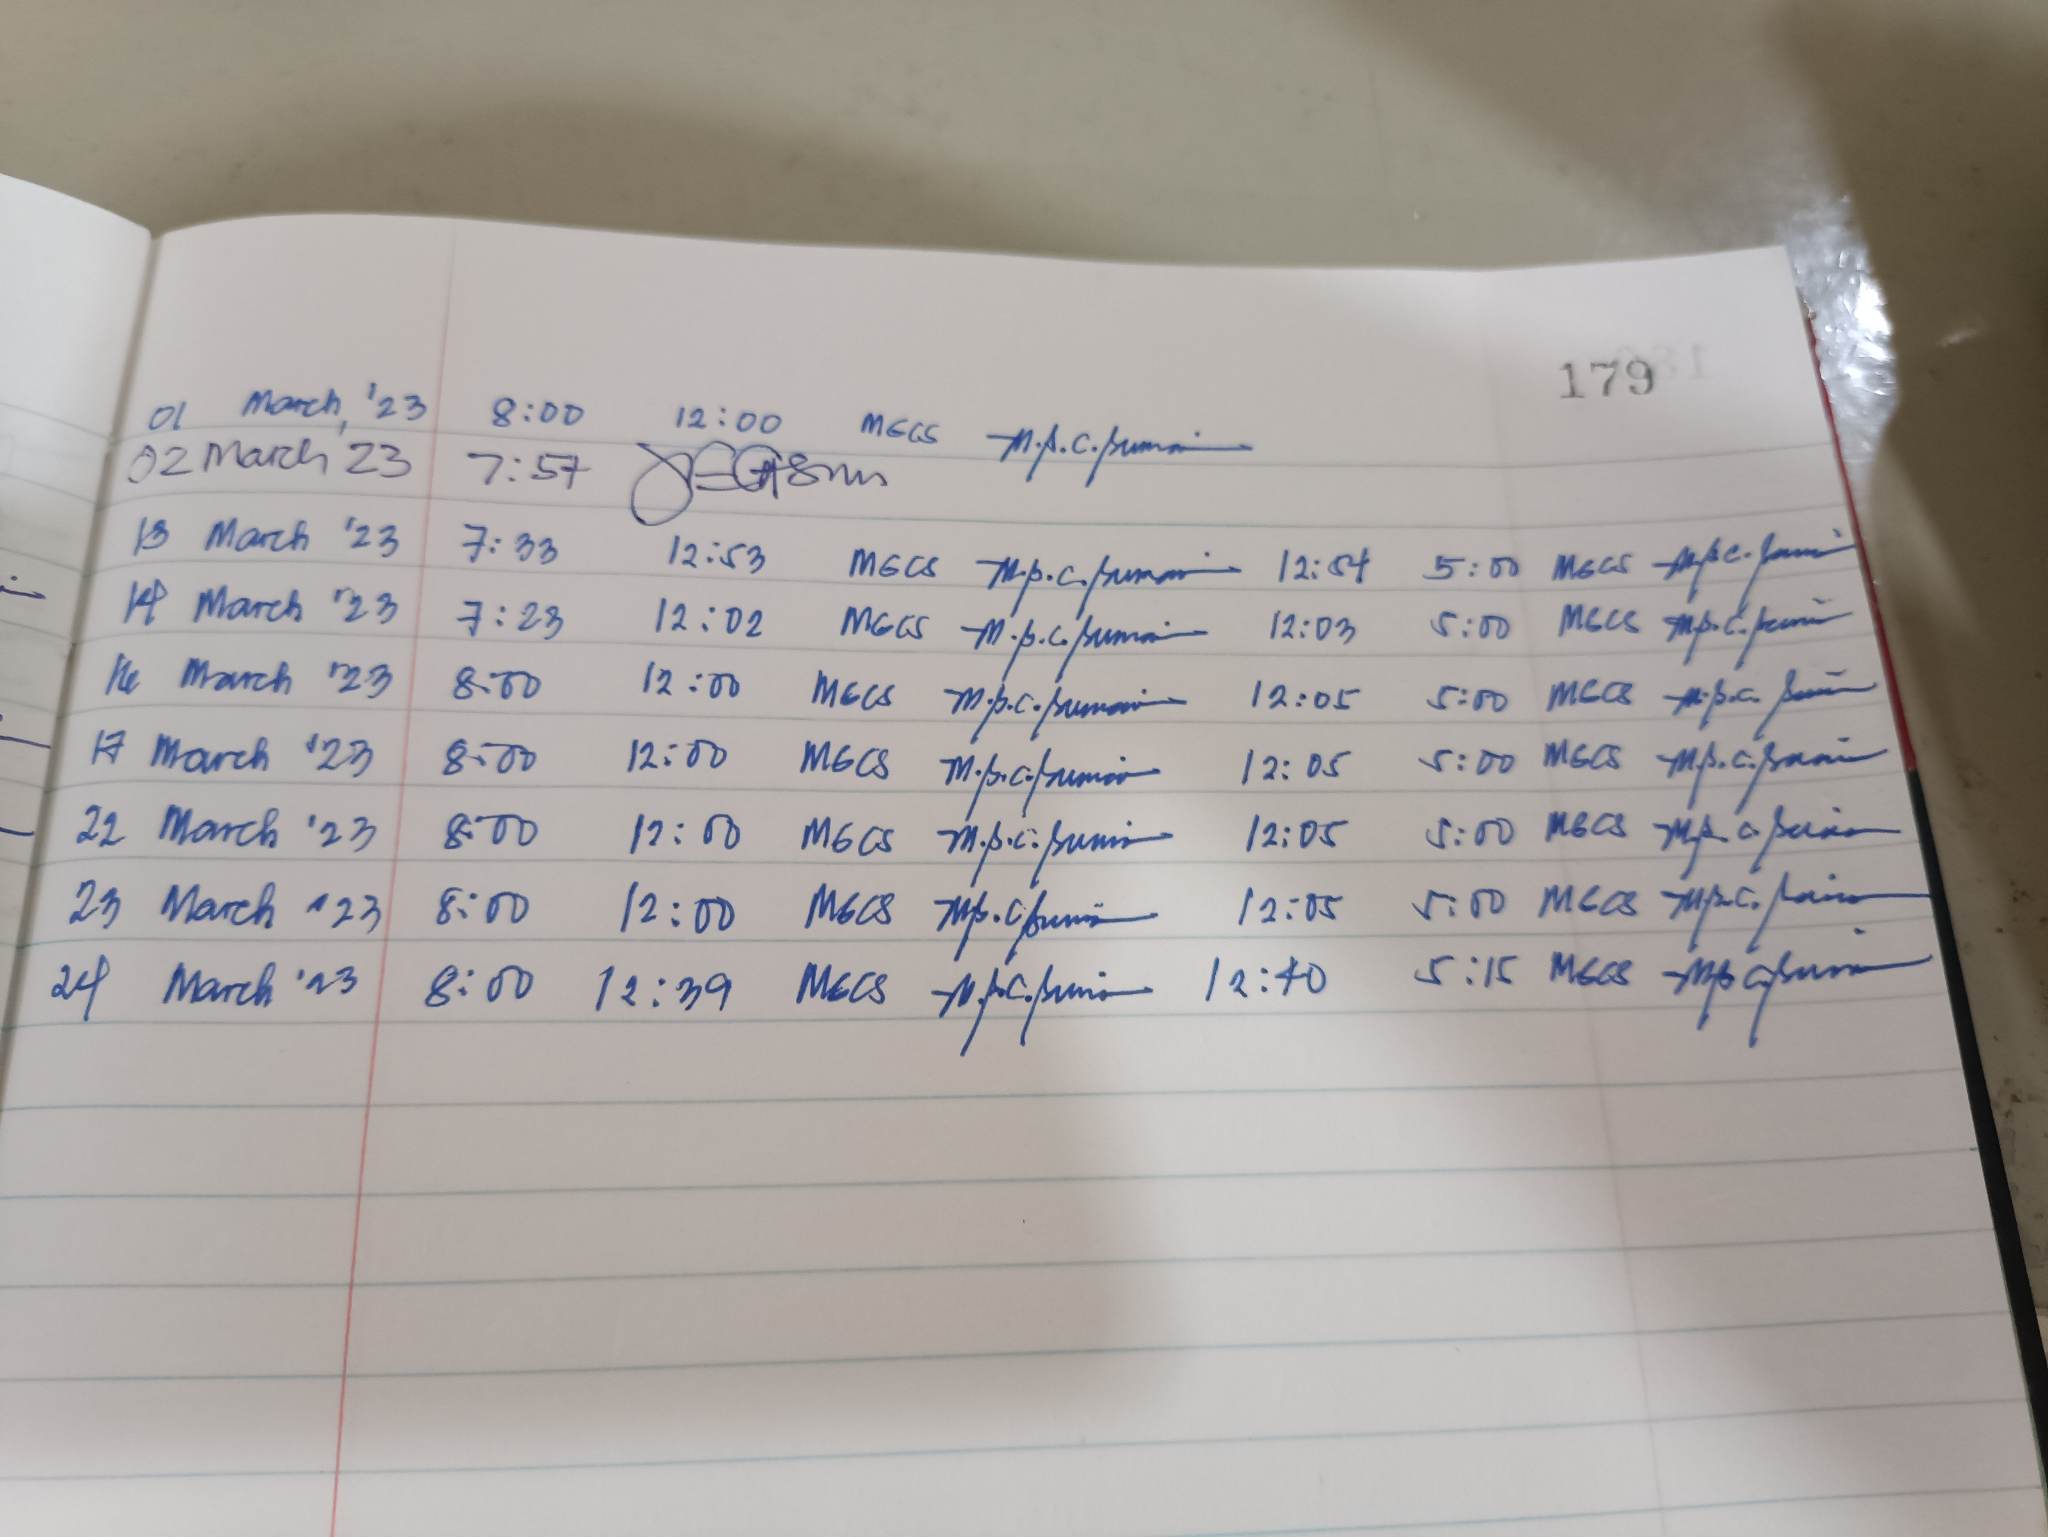 179
01 March, '23 8:00 12:00 MGCS
02 March '23 7:57
13 March '23 7:33 12:53 MGCS 12:54 5:00 MGCS
14 March '23 7:23 12:02 MGCS 12:03 5:00 MGCS
16 March '23 8:00 12:00 MGCS 12:05 5:00 MGCS
17 March '23 8:00 12:00 MGCS 12:05 5:00 MGCS
22 March '23 8:00 12:00 MGCS 12:05 5:00 MGCS
23 March '23 8:00 12:00 MGCS 12:05 5:00 MGCS
24 March '23 8:00 12:39 MGCS 12:40 5:15 MGCS